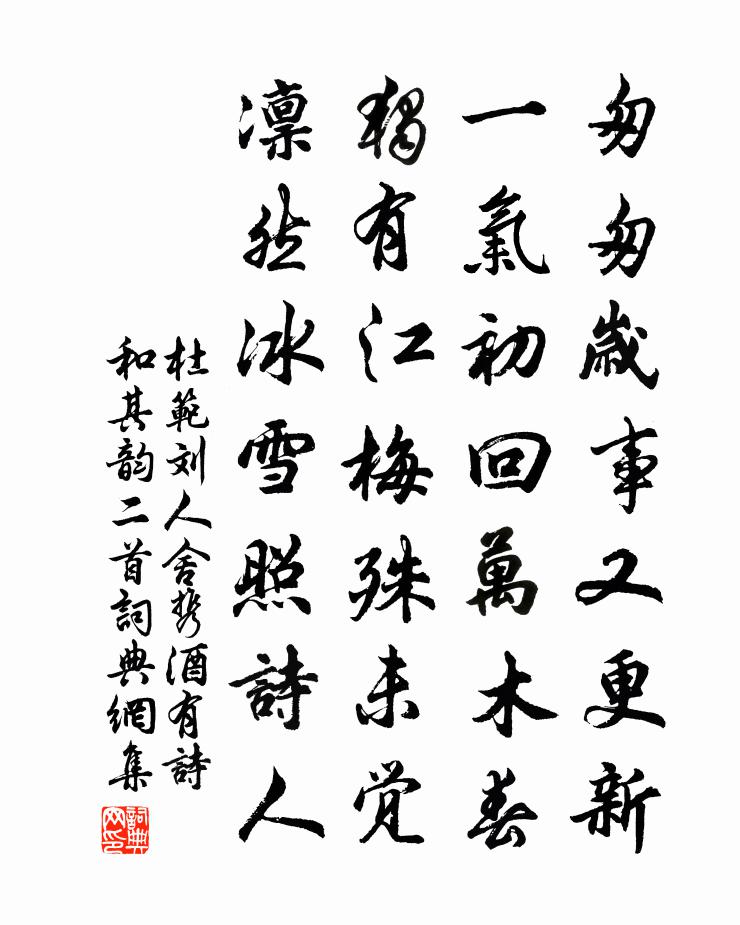 匆匆歲事又更新
一氣初回萬木春
獨有江梅殊未觉
凛然冰雪照詩人
杜範刘人舍携酒有詩
和其韵二首詞典網集
詞典网印